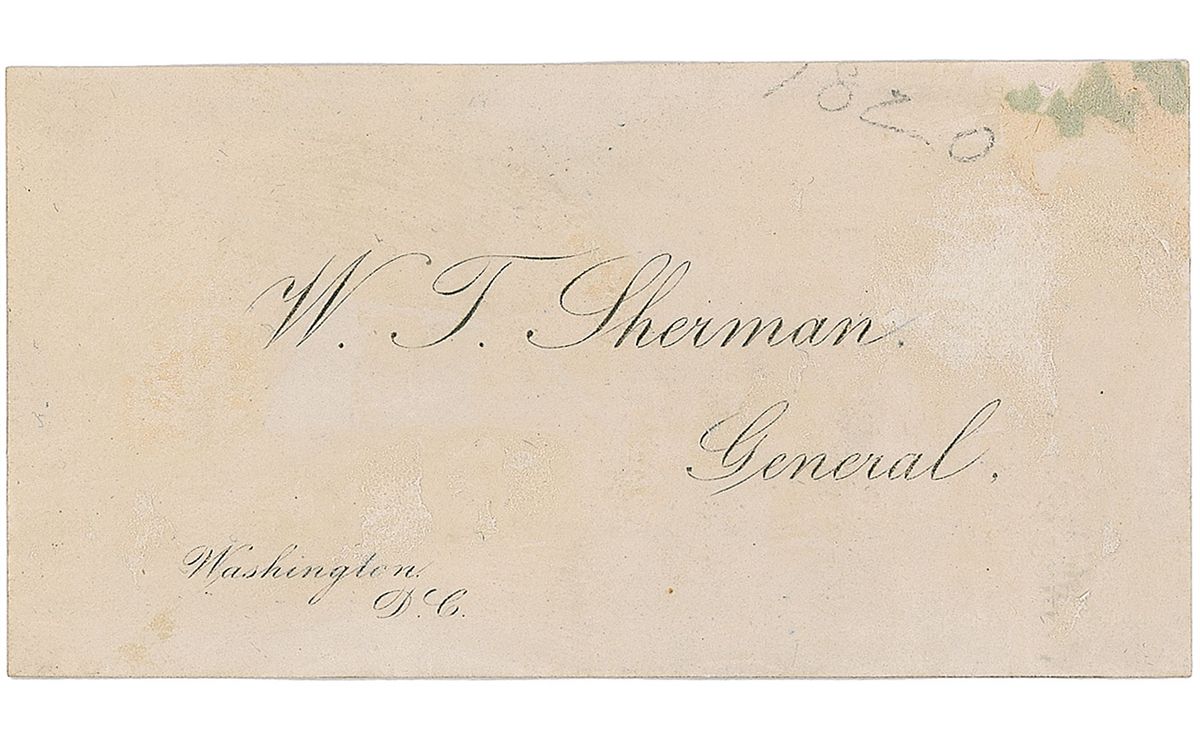 1820
W. T. Sherman.
General.
Washington.
D.C.